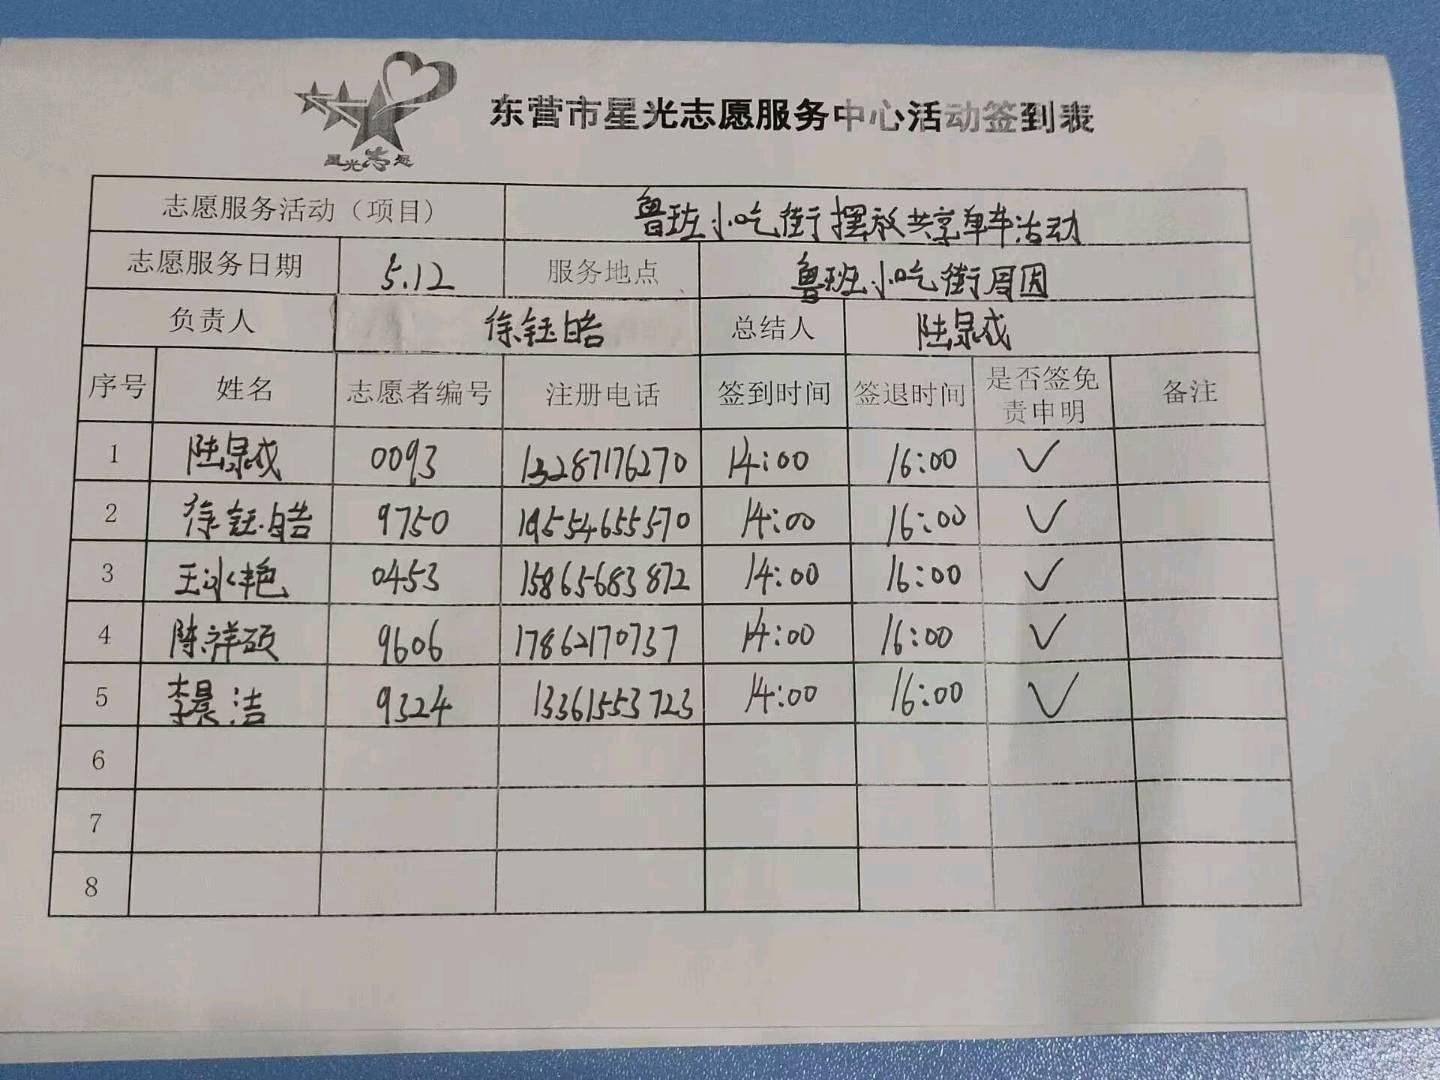 星光志愿
东营市星光志愿服务中心活动签到表
志愿服务活动（项目） 鲁班小吃街摆放共享单车活动
志愿服务日期 5.12 服务地点 鲁班小吃街周因
负责人 徐钰皓 总结人 陆泉成
序号 姓名 志愿者编号 注册电话 签到时间 签退时间 是否签免责申明 备注
1 陆泉成 0093 13287176270 14:00 16:00 ✓
2 徐钰皓 9750 19554655570 14:00 16:00 ✓
3 王冰艳 0453 15865683872 14:00 16:00 ✓
4 陈祥硕 9606 17862170737 14:00 16:00 ✓
5 李昊洁 9324 13361553723 14:00 16:00 ✓
6
7
8